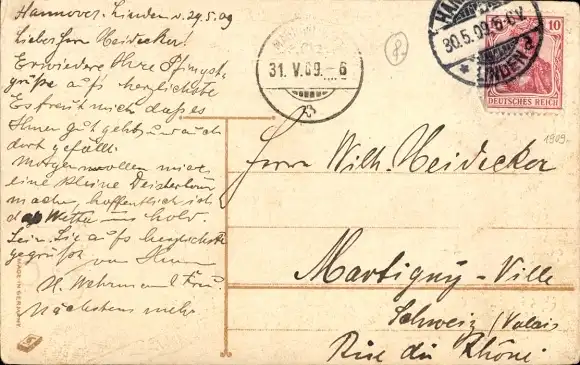 Hannover-Linden d. 29.5.09
Lieber Herr Neidecker!
Erwiedere Ihre Pfingst-
grüße auf's herzlichste
Es freut mich daß es
Ihnen gut geht und auch
dort gefällt.
Morgen wollen wir
eine kleine Deistertour
machen, hoffentlich ist
das Wetter uns hold.
Sein Sie auf's herzlichste
gegrüßt von Ihrem
H. Wehrm und Frau.
Nächstens mehr
MADE IN GERMANY
31. V. 09. - 6
HAN
30.5.09. 5-6 V.
LINDEN
10
DEUTSCHES REICH
1909.
Herrn Wilh. Neidecker
Martigny-Ville
Schweiz / Valais
Rue du Rhône